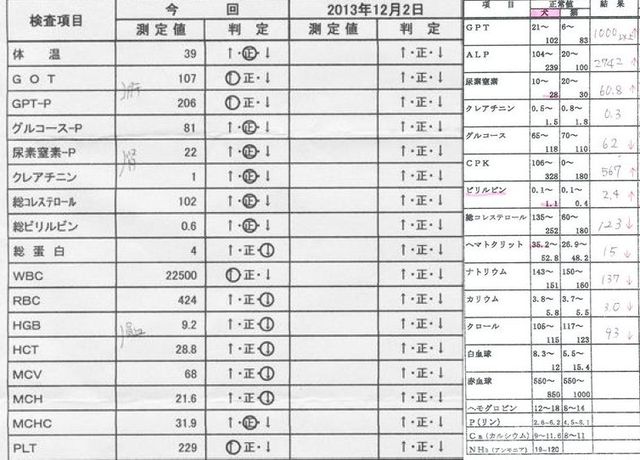 検査項目 今回 2013年12月2日
測定値 判定 測定値 判定
体温 39 ↑・正・↓ ↑・正・↓
GOT 107 ↑・正・↓ ↑・正・↓
肝
GPT-P 206 ↑・正・↓ ↑・正・↓
グルコース-P 81 ↑・正・↓ ↑・正・↓
尿素窒素-P 22 ↑・正・↓ ↑・正・↓
腎
クレアチニン 1 ↑・正・↓ ↑・正・↓
総コレステロール 102 ↑・正・↓ ↑・正・↓
総ビリルビン 0.6 ↑・正・↓ ↑・正・↓
総蛋白 4 ↑・正・↓ ↑・正・↓
WBC 22500 ↑・正・↓ ↑・正・↓
RBC 424 ↑・正・↓ ↑・正・↓
HGB 9.2 ↑・正・↓ ↑・正・↓
HCT 28.8 ↑・正・↓ ↑・正・↓
MCV 68 ↑・正・↓ ↑・正・↓
MCH 21.6 ↑・正・↓ ↑・正・↓
MCHC 31.9 ↑・正・↓ ↑・正・↓
PLT 229 ↑・正・↓ ↑・正・↓
項目 正常値 結果
犬 猫
GPT 21〜 6〜
102 83 1000 ↑
ALP 104〜 20〜
239 100 2742 ↑
尿素窒素 10〜 20〜
28 30 60.8 ↑
クレアチニン 0.5〜 0.8〜
1.5 1.8 0.3
グルコース 65〜 70〜
118 110 62 ↓
CPK 106〜 0〜
328 180 567 ↑
ビリルビン 0.1〜 0.1〜
1.1 0.4 2.4 ↑
総コレステロール 135〜 60〜
252 180 123 ↓
ヘマトクリット 35.2〜 26.9〜
52.8 48.2 15 ↓
ナトリウム 143〜 150〜
151 160 137 ↓
カリウム 3.8〜 3.7〜
5.8 5.5 3.0 ↓
クロール 105〜 117〜
115 123 93 ↓
白血球 8.3〜 5.5〜
12 15.4
赤血球 550〜 550〜
850 1000
ヘモグロビン 12〜18 8〜14
P(リン) 2.6-6.2 4.5-8.1
Ca(カルシウム) 9〜11.6 8〜11
NH3(アンモニア) 19-120